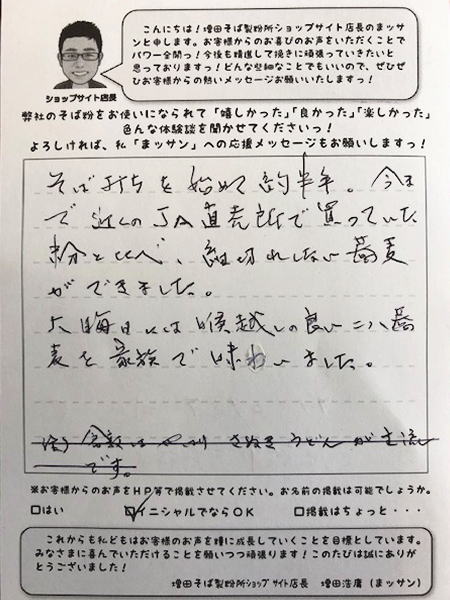 こんにちは！増田そば製粉所ショップサイト店長のまッサ
ンと申します。お客様からのお喜びのお声をいただくことで
パワー全開っ！今後も精進して挽きに頑張っていきたいと
思っておりますっ！どんな些細なことでもいいので、ぜひぜ
ひお客様からの熱いメッセージお願いいたしますっ！
ショップサイト店長
弊社のそば粉をお使いになられて「嬉しかった」「良かった」「楽しかった」
色んな体験談を聞かせてくださいっ！
よろしければ、私「まッサン」への応援メッセージもお願いしますっ！
そば打ちを始めて約半年。今ま
で近くのJA直売所で買っていた
粉と比べ、細切れしない蕎麦
ができました。
大晦日には喉越しの良い二八蕎
麦を家族で味わいました。
はやっぱりさぬきうどんが主流
です。
※お客様からのお声をHP等で掲載させてください。お名前の掲載は可能でしょうか。
□はい ☑イニシャルでならOK □掲載はちょっと・・・
これからも私どもはお客様のお声を糧に成長していくことを目標としています。
みなさまに喜んでいただけることを願いつつ頑張ります！このたびは誠にありが
とうございました！
増田そば製粉所ショップサイト店長 増田浩庸（まッサン）